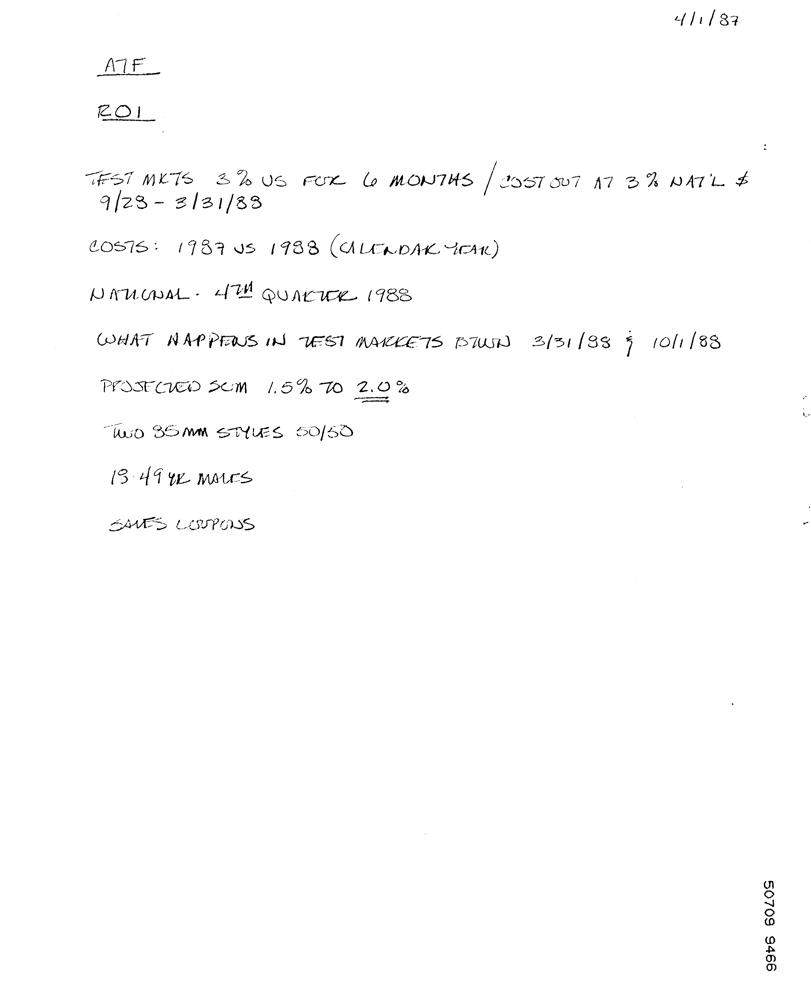 4/1/87
ATF
ROI
TEST MKTS 3% US FOR 6 MONTHS / COST OUT AT 3% NAT'L $
9/28 - 3/31/88
COSTS: 1987 VS 1988 (CALENDAR YEAR)
NATIONAL - 4TH QUARTER 1988
WHAT HAPPENS IN TEST MARKETS BTWN 3/31/88 & 10/1/88
PROJECTED SOM 1.5% TO 2.0%
TWO 85MM STYLES 50/50
18-49 YR MALES
SALES COUPONS
50709 9466